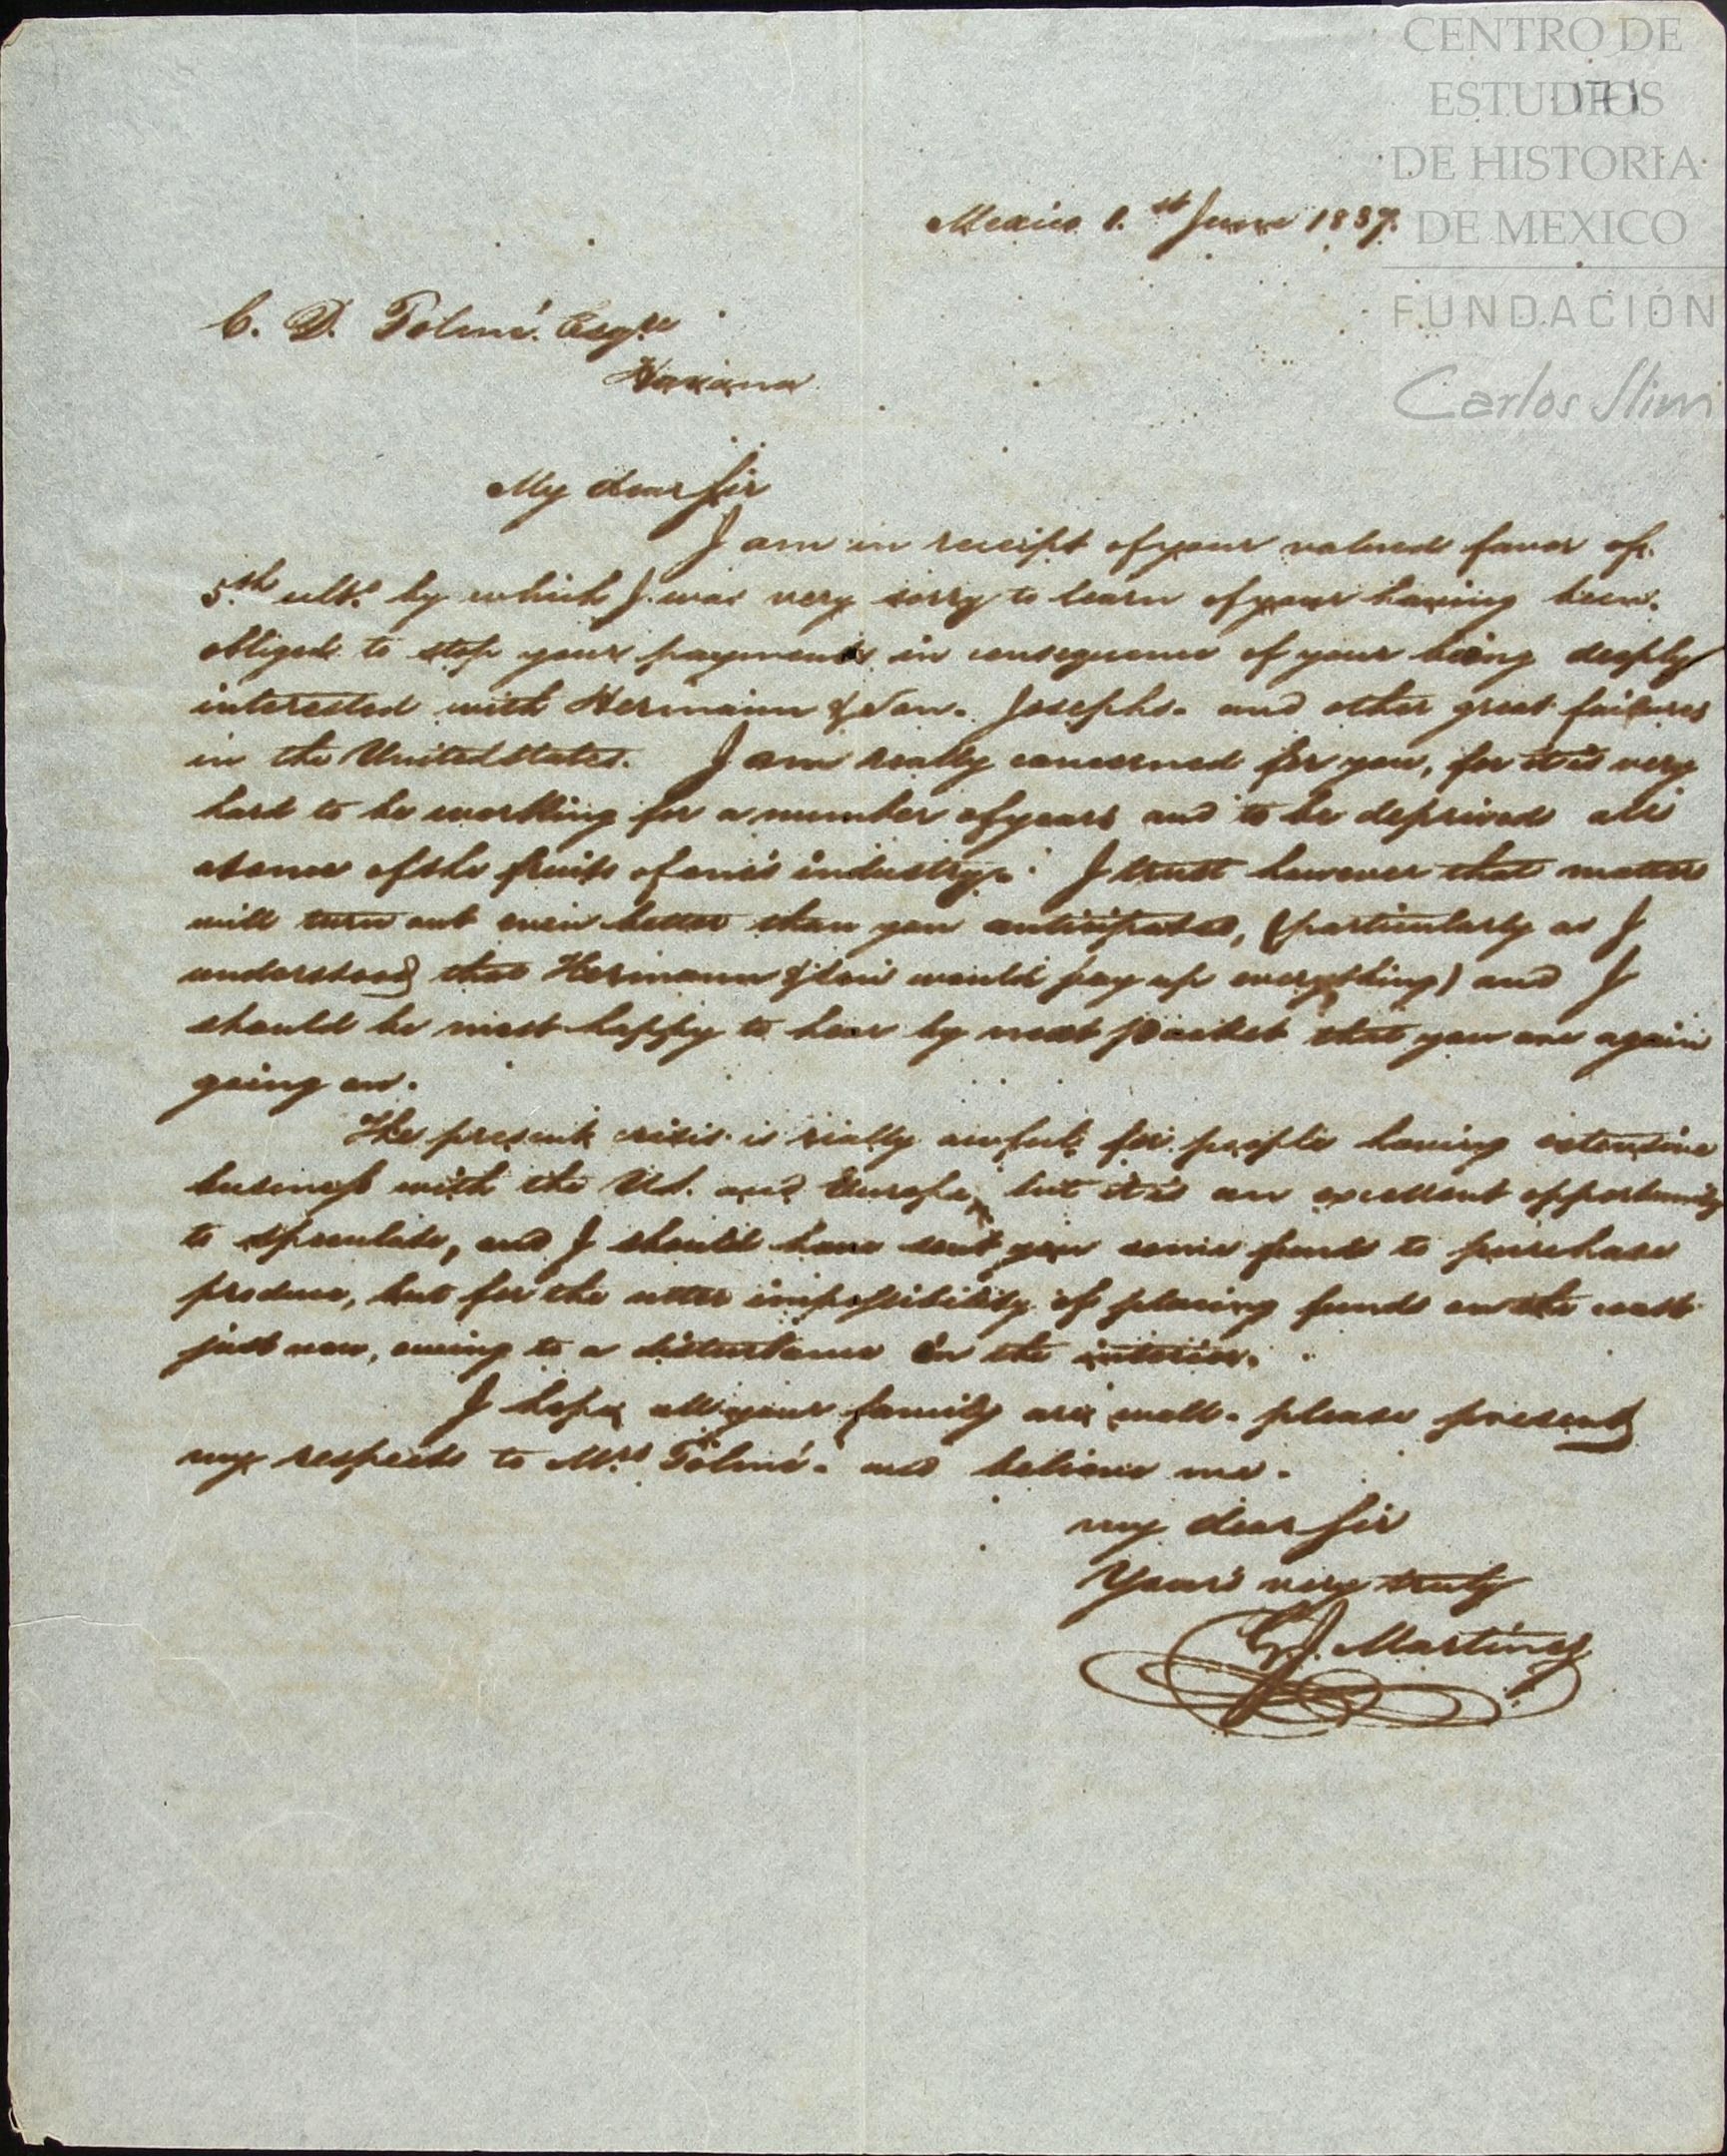 CENTRO DE
ESTUDIOS
171
DE HISTORIA
DE MEXICO
FUNDACIÓN
Carlos Slim
Mexico 1.st June 1837.
C. D. Tolmé. Esqre
Havana
My dear Sir
I am in receipt of your valued favor of
5.th ulto. by which I was very sorry to learn of your having been
obliged to stop your payments in consequence of your being deeply
interested with Hermann & Son. Josephs. and other great failures
in the United States. I am really concerned for you, for it is very
hard to be workling for a number of years and to be deprived all
at once of the fruits of one's industry. I trust however that matters
will turn out even better than you anticipated, (particularly as I
understood that Hermann & Son would pay up everything) and I
should be most happy to hear by next packet that you are again
going on.
The present crisis is really awful for people having extensive
business with the U.S. and Europe, but it is an excellent opportunity
to speculate, and I should have sent you some funds to purchase
produce, but for the utter impossibility of placing funds on the coast
just now, owing to a disturbance in the interior.
I hope all your family are well. please present
my respects to Mrs Tolmé. and believe me.
my dear Sir
Your's very truly
G. J. Martinez